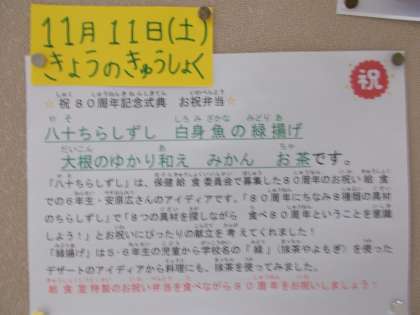 11月11日(土)
きょうのきゅうしょく
祝
☆祝80周年記念式典 お祝弁当☆
八十ちらしずし 白身魚の緑揚げ
大根のゆかり和え みかん お茶です。
「八十ちらしずし」は、保健給食委員会で募集した80周年のお祝い給食
での6年生・安原広さんのアイディアです。「80周年にちなみ8種類の具材
のちらしずし」で「8つの具材を探しながら 食べ80周年ということを意識
しよう!」とお祝いにぴったりの献立を考えてくれました!
「緑揚げ」は5・6年生の児童から学校名の『緑』(抹茶やよもぎ)を使った
デザートのアイディアから料理にも、抹茶を使ってみました。
給食室特製のお祝い弁当を食べながら80周年をお祝いしましょう!